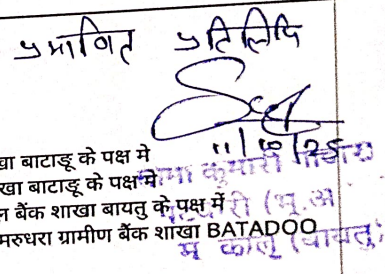 प्रमाणित प्रतिलिपि
11/10/25
खा बाटाडू के पक्ष मे
खा बाटाडू के पक्ष मे
न बैंक शाखा बायतु के पक्ष में
मरुधरा ग्रामीण बैंक शाखा BATADOO
कुमारी
(भू.अ
(बायतु)